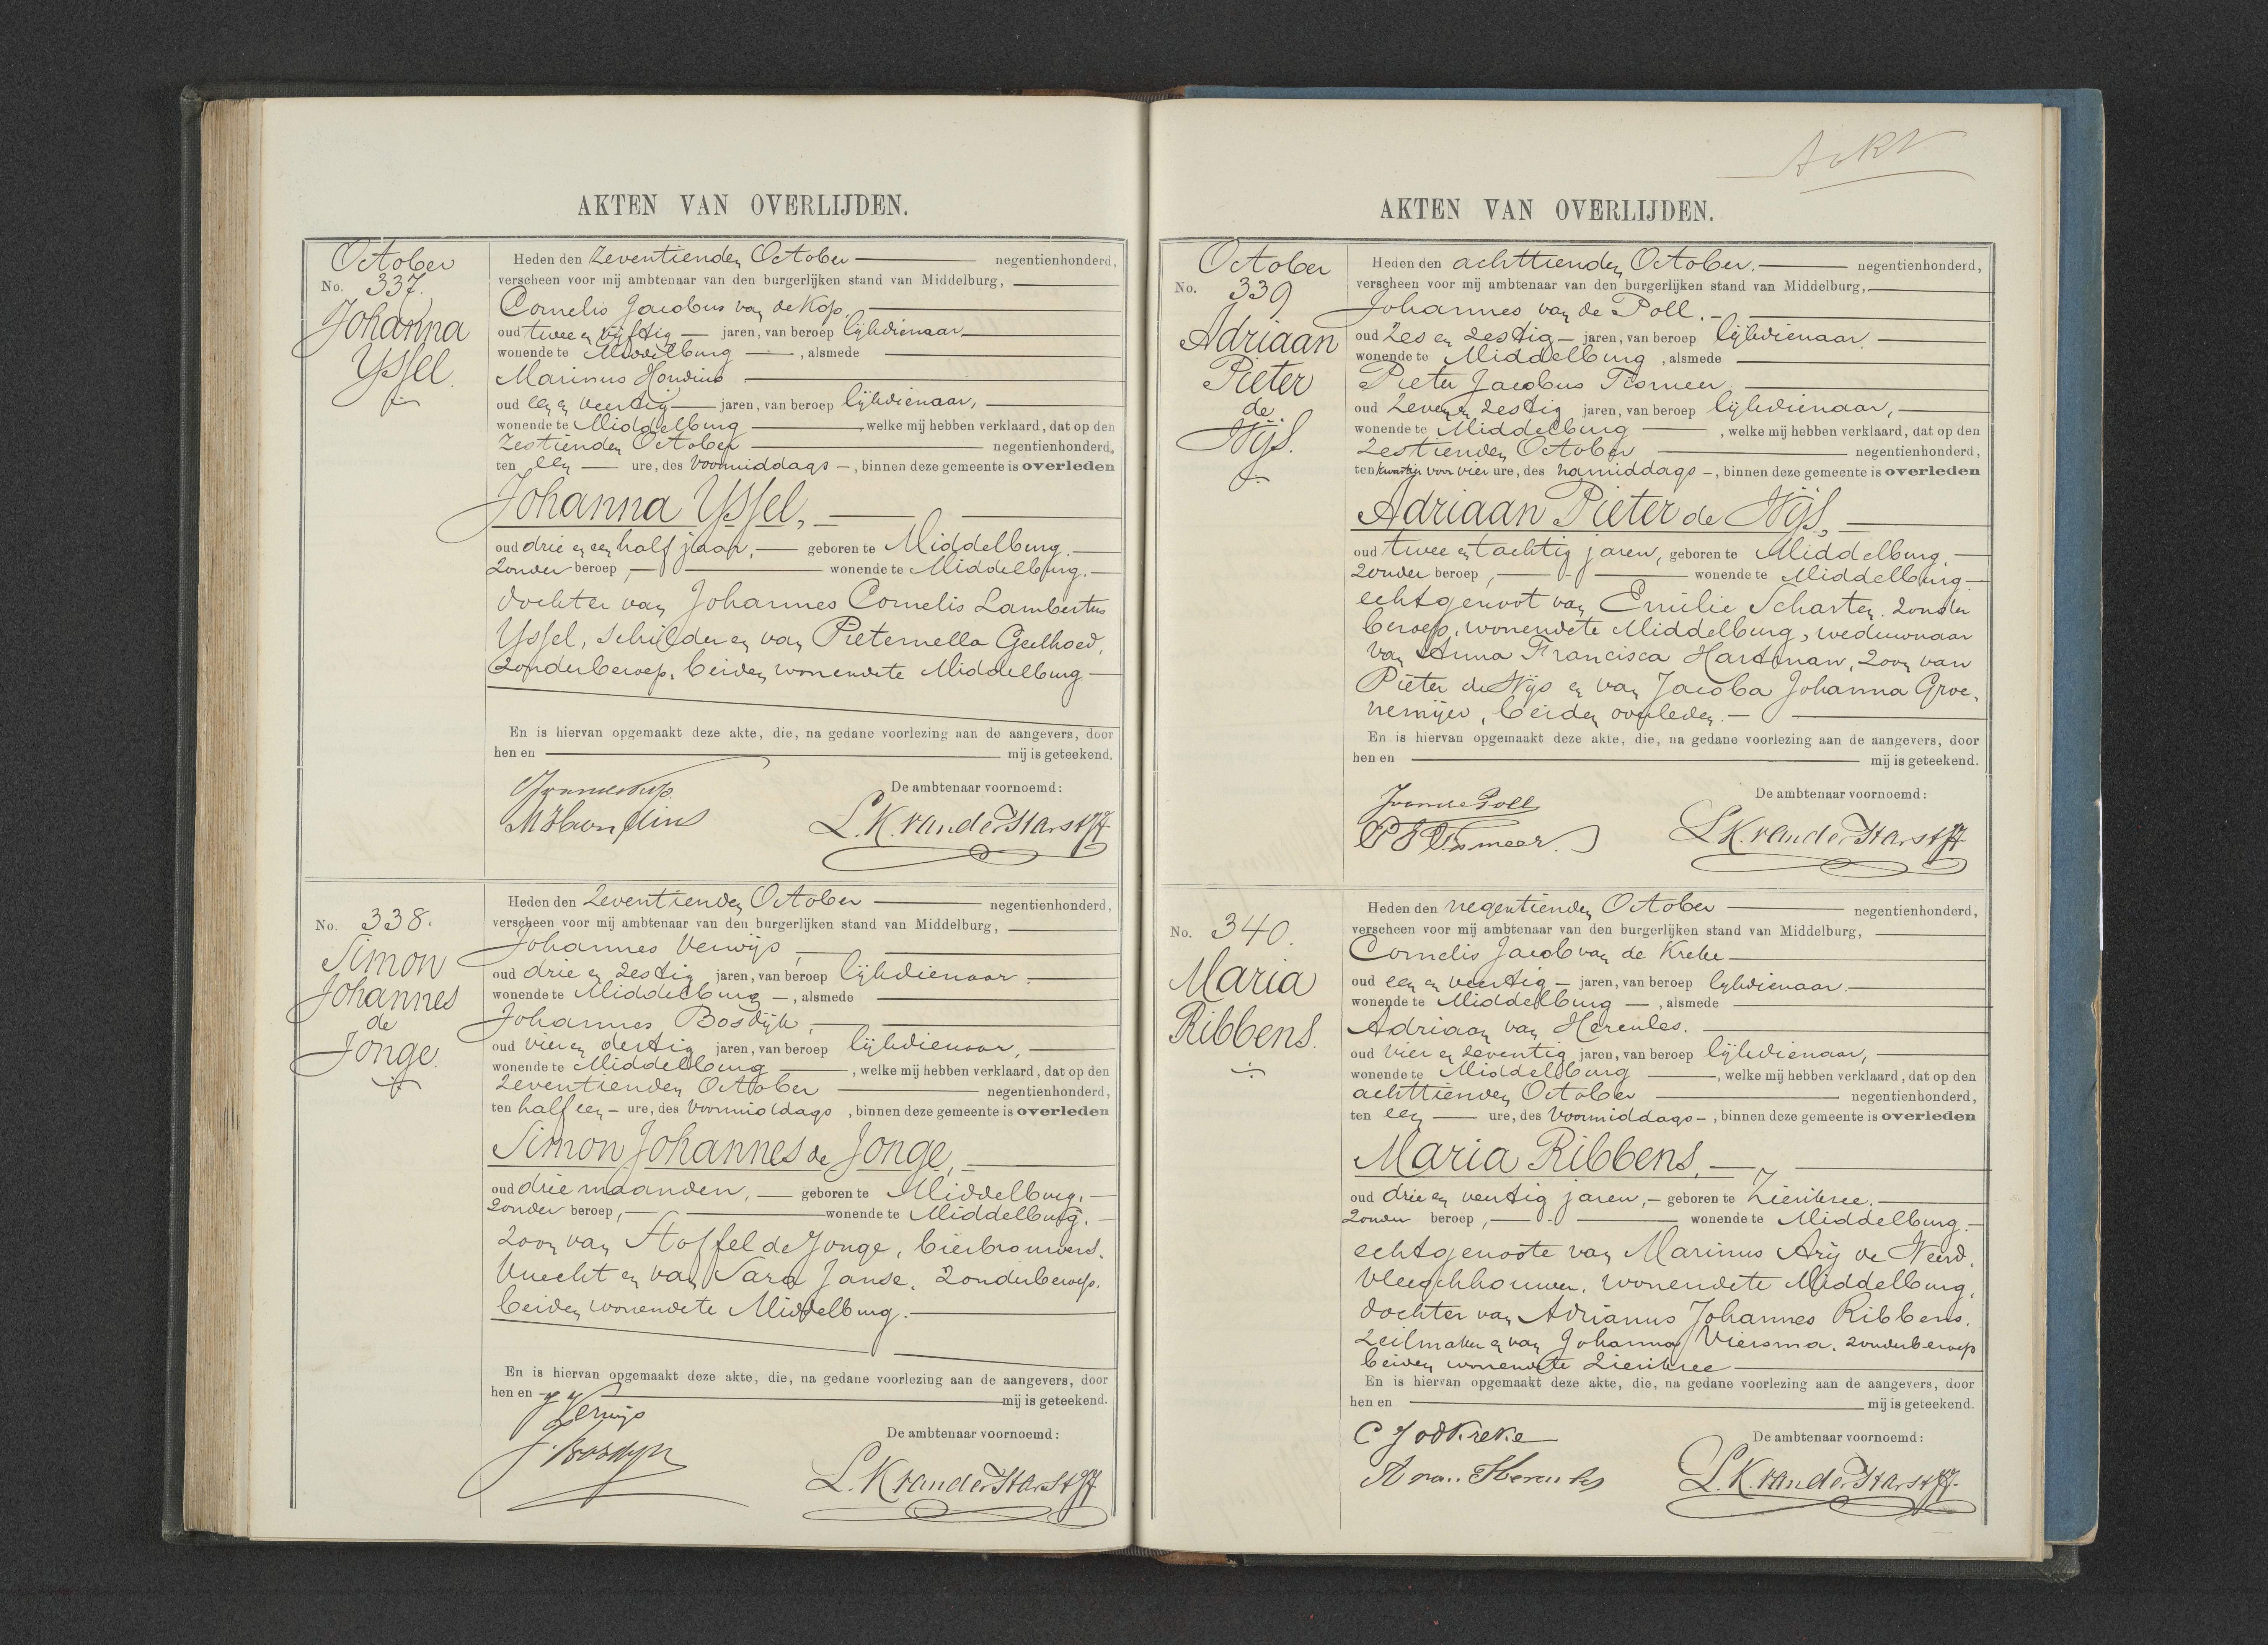 AKTEN VAN OVERLIJDEN.
October
No. 337.
Johanna
Yssel.
Heden den zeventienden October negentienhonderd,
verscheen voor mij ambtenaar van den burgerlijken stand van Middelburg,
Cornelis Jacobus van de Kop,
oud twee en vijftig jaren, van beroep lijkdienaar
wonende te Middelburg , alsmede
Marinus Hondius
oud een en veertig jaren, van beroep lijkdienaar,
wonende te Middelburg , welke mij hebben verklaard, dat op den
zestienden October negentienhonderd,
ten een ure, des voormiddags , binnen deze gemeente is overleden
Johanna Yssel,
oud drie en een half jaar, geboren te Middelburg.
zonder beroep, wonende te Middelburg.
dochter van Johannes Cornelis Lambertus
Yssel, schilder en van Pieternella Geelhoed,
zonder beroep, beiden wonende te Middelburg
En is hiervan opgemaakt deze akte, die, na gedane voorlezing aan de aangevers, door
hen en mij is geteekend.
De ambtenaar voornoemd:
M Hondius
L. K. van der Harst
No. 338.
Simon
Johannes
de
Jonge.
Heden den zeventienden October negentienhonderd,
verscheen voor mij ambtenaar van den burgerlijken stand van Middelburg,
Johannes Verwijs,
oud drie en zestig jaren, van beroep lijkdienaar
wonende te Middelburg , alsmede
Johannes Bosdijk,
oud vier en dertig jaren, van beroep lijkdienaar,
wonende te Middelburg , welke mij hebben verklaard, dat op den
zeventienden October negentienhonderd,
ten half een ure, des voormiddags , binnen deze gemeente is overleden
Simon Johannes de Jonge,
oud drie maanden, geboren te Middelburg,
zonder beroep, wonende te Middelburg.
zoon van Stoffel de Jonge, bierbrouwers-
knecht en van Sara Janse, zonder beroep,
beiden wonende te Middelburg.
En is hiervan opgemaakt deze akte, die, na gedane voorlezing aan de aangevers, door
hen en mij is geteekend.
J Verwijs
De ambtenaar voornoemd:
J. Bosdijk
L. K. van der Harst
Ackr
AKTEN VAN OVERLIJDEN.
October
No. 339
Adriaan
Pieter
de
Nijs.
Heden den achttienden October. negentienhonderd,
verscheen voor mij ambtenaar van den burgerlijken stand van Middelburg,
Johannes van de Poll.
oud zes en zestig jaren, van beroep lijkdienaar
wonende te Middelburg , alsmede
Pieter Jacobus Tromeer,
oud zeven en zestig jaren, van beroep lijkdienaar,
wonende te Middelburg , welke mij hebben verklaard, dat op den
zestienden October negentienhonderd,
ten kwartier voor vier ure, des namiddags , binnen deze gemeente is overleden
Adriaan Pieter de Nijs,
oud twee en tachtig jaren, geboren te Middelburg.
zonder beroep, wonende te Middelburg
echtgenoot van Emilie Scharten, zonder
beroep, wonende te Middelburg, weduwnaar
van Anna Francisca Hartman, zoon van
Pieter de Nijs en van Jacoba Johanna Groe-
nemijer, beiden overleden.
En is hiervan opgemaakt deze akte, die, na gedane voorlezing aan de aangevers, door
hen en mij is geteekend.
De ambtenaar voornoemd:
J van de Poll
L. K. van der Harst
No. 340.
Maria
Ribbens.
Heden den negentienden October negentienhonderd,
verscheen voor mij ambtenaar van den burgerlijken stand van Middelburg,
Cornelis Jacob van de Kreke
oud een en veertig jaren, van beroep lijkdienaar.
wonende te Middelburg , alsmede
Adriaan van Hercules.
oud vier en zeventig jaren, van beroep lijkdienaar,
wonende te Middelburg , welke mij hebben verklaard, dat op den
achttienden October negentienhonderd,
ten een ure, des voormiddags , binnen deze gemeente is overleden
Maria Ribbens,
oud drie en veertig jaren, geboren te Zierikzee.
zonder beroep, wonende te Middelburg.
echtgenoote van Marinus Arij de Neerd,
vleeschhouwer, wonende te Middelburg,
dochter van Adrianus Johannes Ribbens,
zeilmaker en van Johanna Viersma, zonder beroep
beiden wonende te Zierikzee
En is hiervan opgemaakt deze akte, die, na gedane voorlezing aan de aangevers, door
hen en mij is geteekend.
C J vd Kreke
De ambtenaar voornoemd:
A van Hercules
L. K. van der Harst